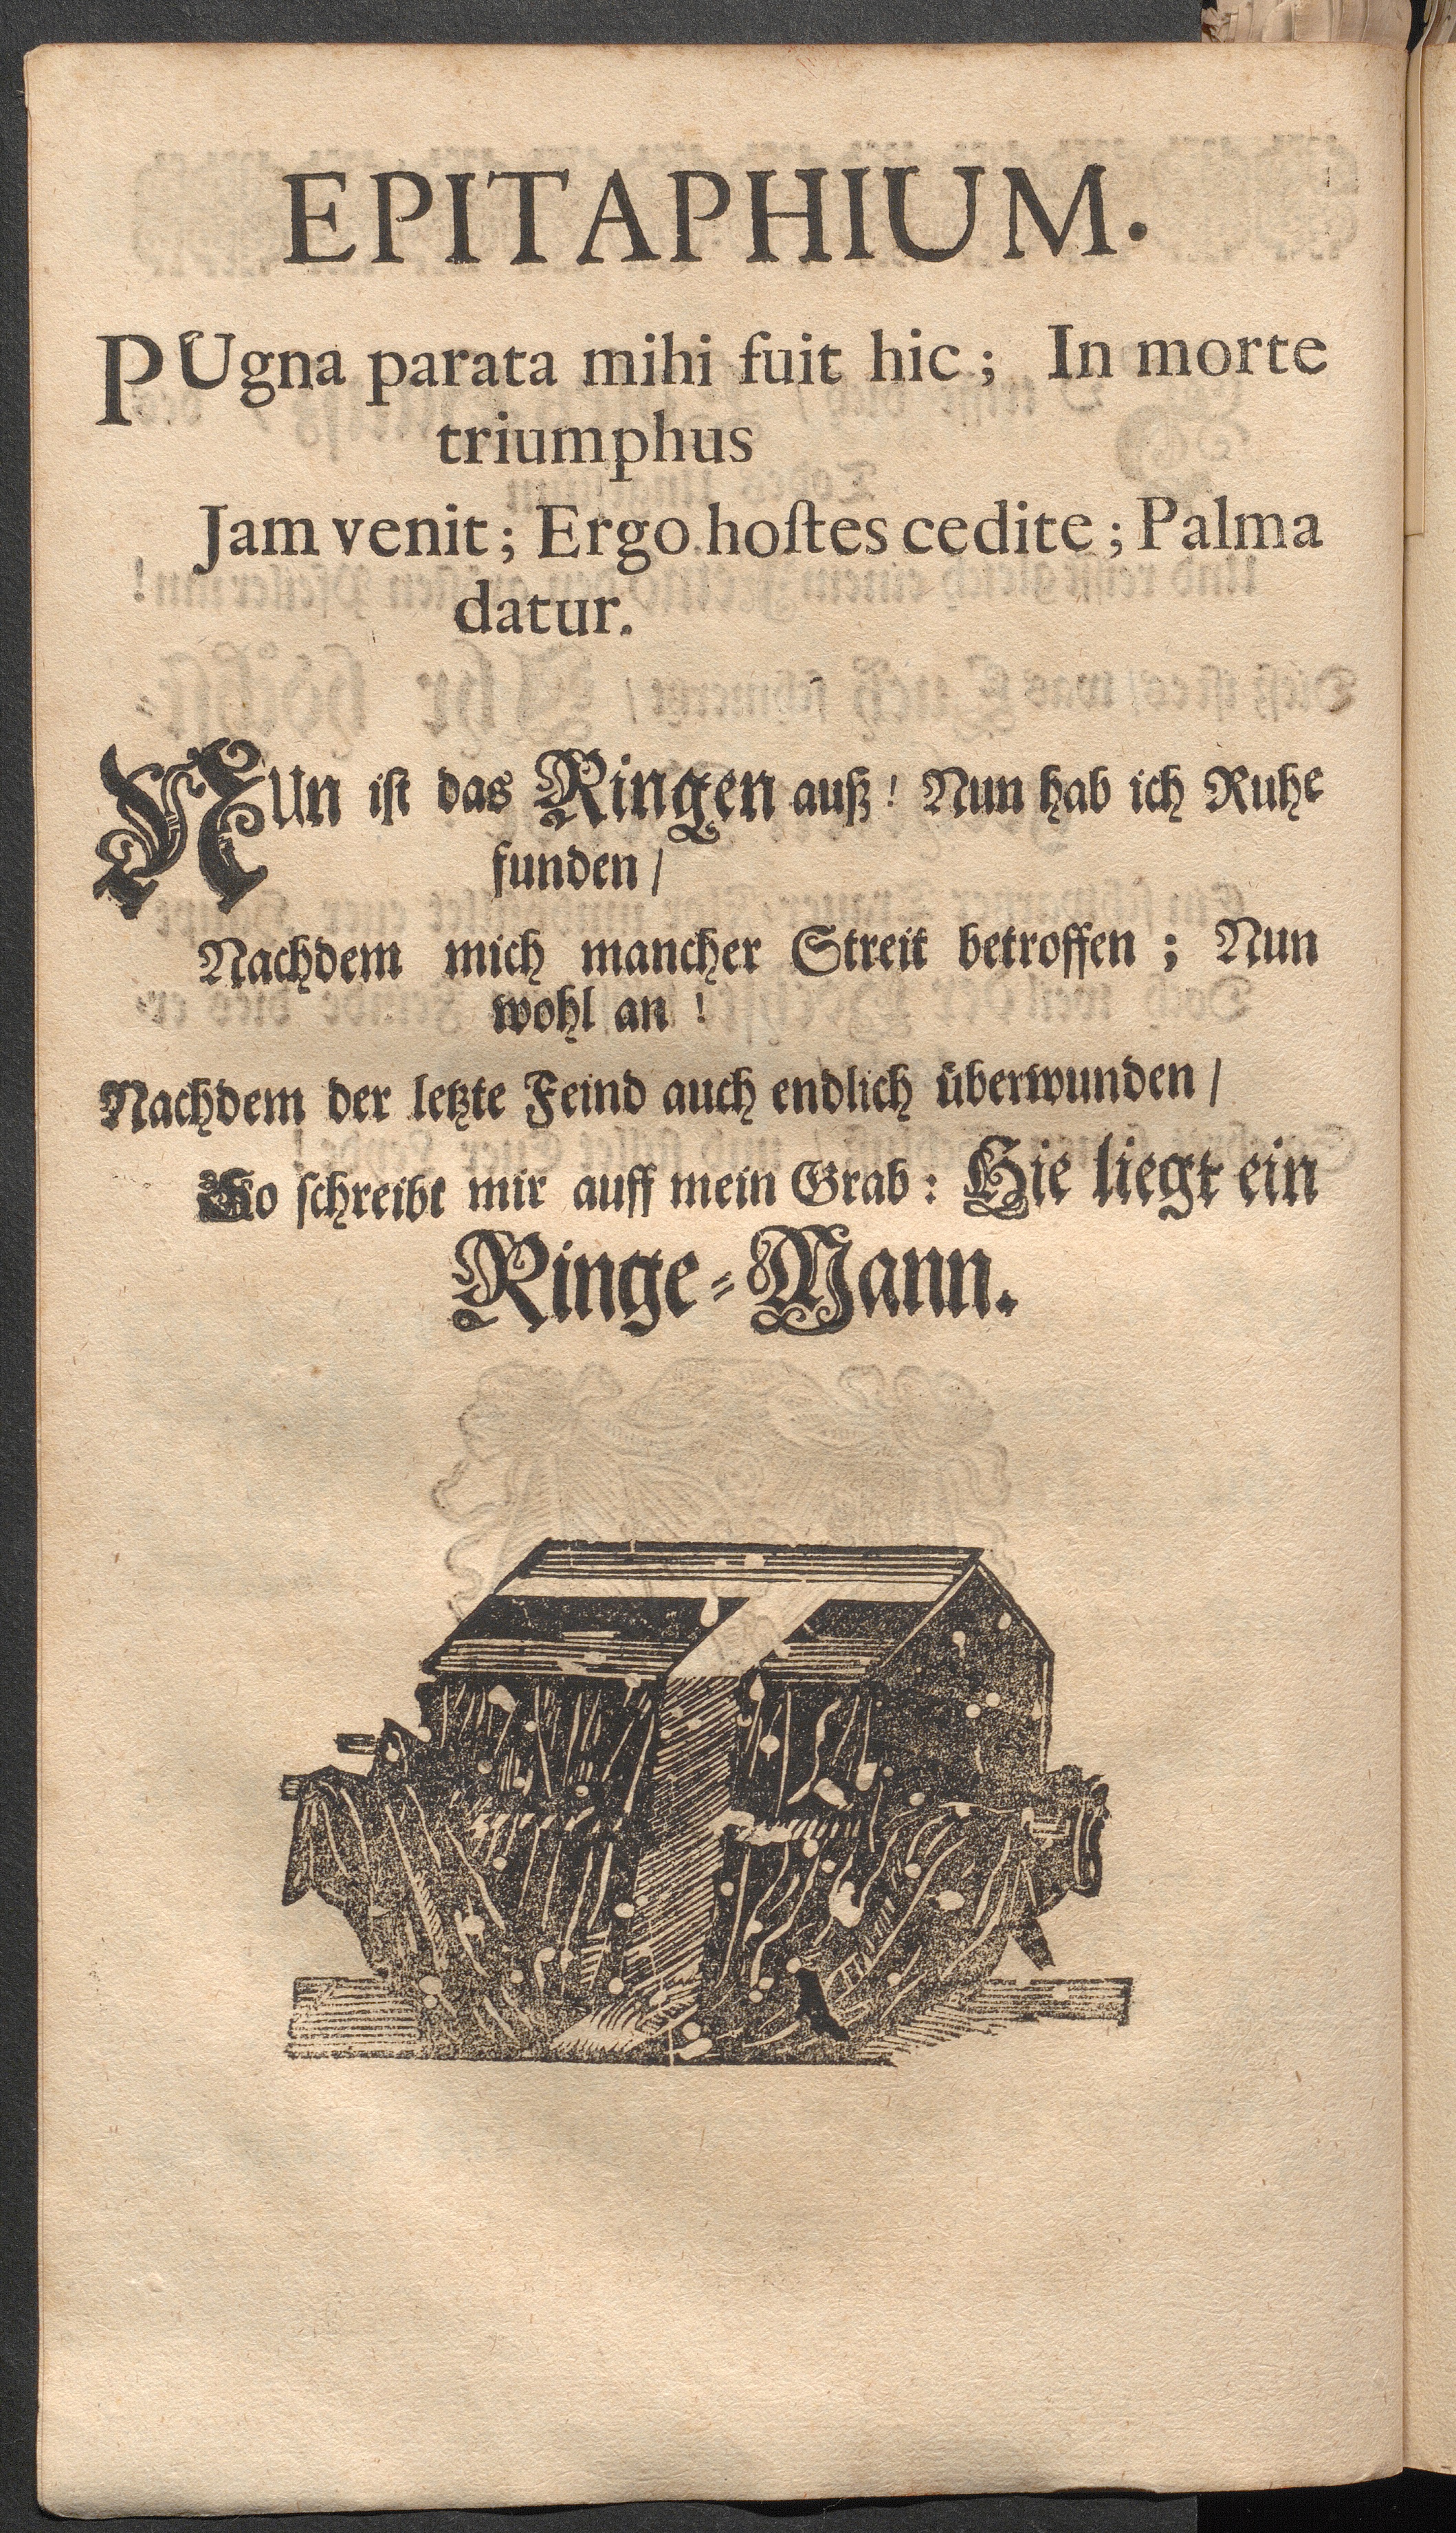 EPITAPHIUM.
PUgna parata mihi fuit hic; In morte
triumphus
Jam venit; Ergo hoſtes cedite; Palma
datur.
NUn iſt das Ringen auß! Nun hab ich Ruhe
funden /
Nachdem mich mancher Streit betroffen; Nun
wohl an!
Nachdem der letzte Feind auch endlich überwunden /
So ſchreibt mir auff mein Grab: Hie liegt ein
Ringe-Mann.